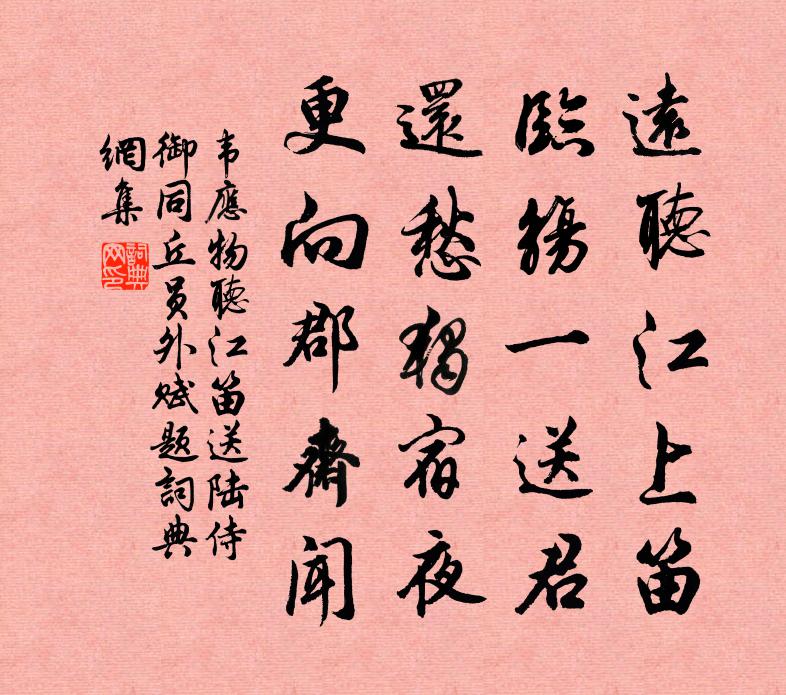 遠聽江上笛
臨觴一送君
還愁獨宿夜
更向郡齋聞
韦應物聽江笛送陆侍
御同丘员外赋题詞典
網集
詞典網印